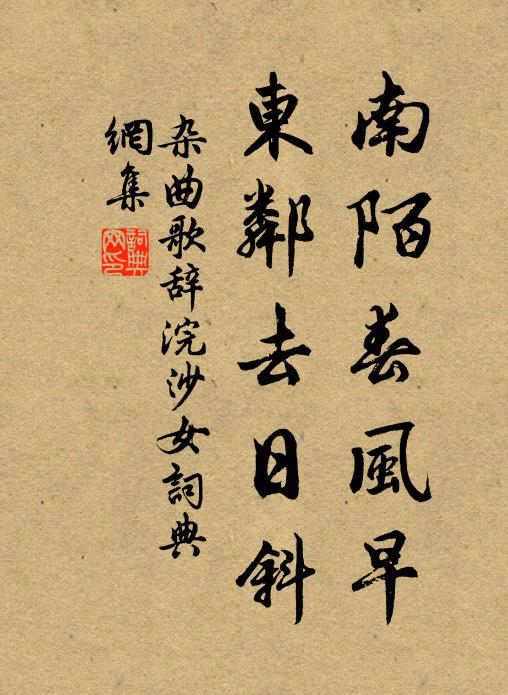 南陌春風早
東鄰去日斜
杂曲歌辞浣沙女詞典
網集
詞典
网印